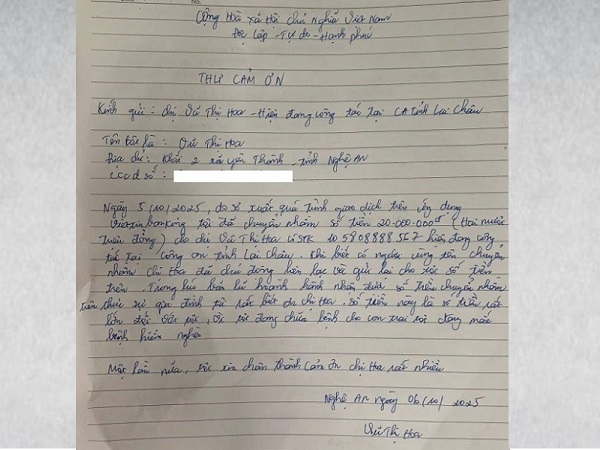 Cộng Hòa Xã Hội Chủ Nghĩa Việt Nam
Độc Lập - Tự do - Hạnh phúc
THƯ CẢM ƠN
Kính gửi: chị Vũ Thị Hoa - Hiện đang công tác tại CA tỉnh Lai Châu
Tên tôi là: Vũ Thị Hoa
Địa chỉ: Khối 2 xã yên Thành - tỉnh Nghệ An
CCCD số:
Ngày 5/10/2025, do sơ xuất quá trình giao dịch trên ứng dụng
Vietinbanking tôi đã chuyển nhầm số tiền 20.000.000đ (Hai mươi
triệu đồng) cho chị Vũ Thị Hoa có STK 105808888567 hiện đang công
tác tại Công an tỉnh Lai Châu. Khi biết có người cùng tên chuyển
nhầm chị Hoa đã chủ động liên lạc và gửi lại cho tôi số tiền
trên. Trong lúc hoàn cảnh nhận được số tiền chuyển nhầm
trên thực sự gia đình tôi rất biết ơn chị Hoa. Số tiền này là số tiền rất
lớn đối với tôi, vì tôi đang chữa bệnh cho con trai tôi đang mắc
bệnh hiểm nghèo
Một lần nữa, tôi xin chân thành cảm ơn chị Hoa rất nhiều
Nghệ An ngày 06/10/2025
Vũ Thị Hoa